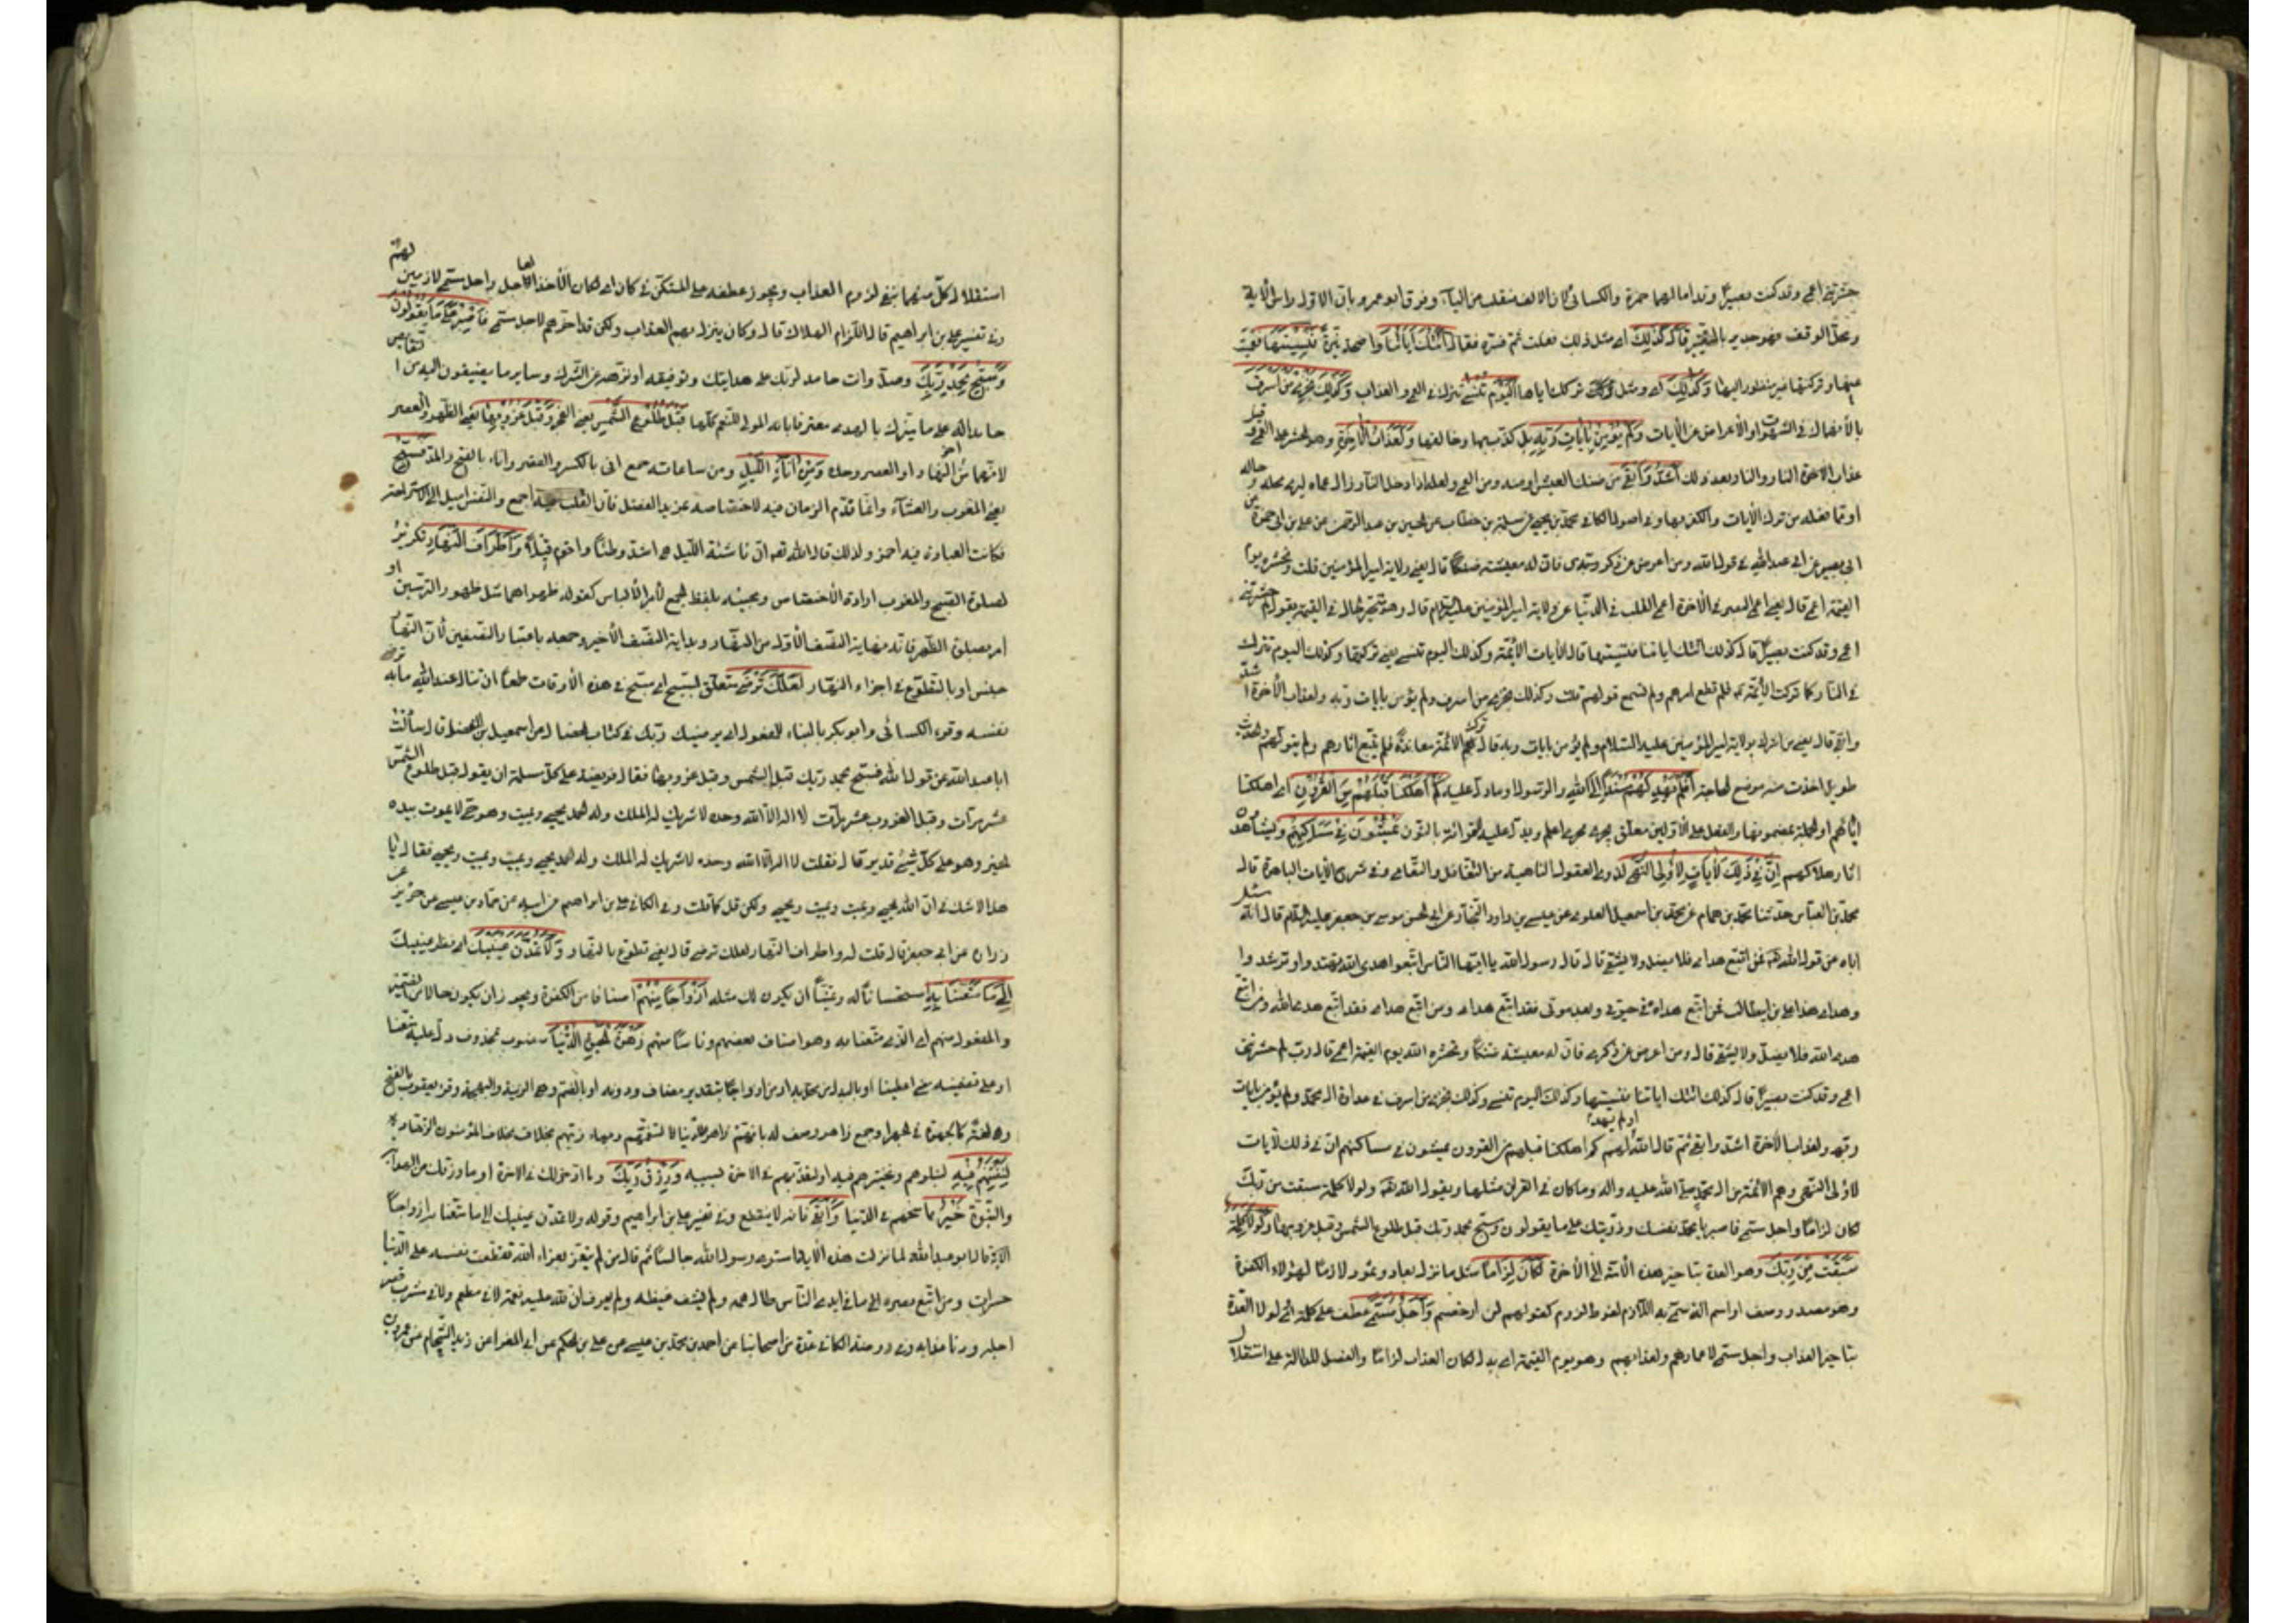 حشرتنى اعمى وقد كنت بصيرا وقد امالهما حمزة والكسائى لان الالف منقلب من الياء وفرق ابو عمرو بان الاول راس الاية
ومحل الوقف فهو جدير بالتغيير قال كذلك اى مثل ذلك فعلت ثم فسره فقال اتتك اياتنا واضحة نيرة فنسيتها فعميت
عنها وتركتها غير منظور اليها وكذلك اى ومثل تركك اياها اليوم تنسى تترك فى العمى والعذاب وكذلك نجزى من اسرف
بالانهماك فى الشهوات والاعراض عن الايات ولم يؤمن بايات ربه بل كذب بها وخالفها ولعذاب الاخرة وهو الحشر على العمى وقيل
عذاب الاخرة النار والنار بعد ذلك اشد وابقى من ضنك العيش او منه ومن العمى ولعله اذا دخل النار زال عماه ليرى محله وحاله
او مما فعله من ترك الايات والكفر بها وفى اصول الكافى محمد بن يحيى عن سلمة بن خطاب عن الحسين بن عبد الرحمن عن على بن ابى حمزة عن
ابى بصير عن ابى عبد الله فى قول الله ومن اعرض عن ذكرى فان له معيشة ضنكا قال يعنى ولاية امير المؤمنين قلت ونحشره يوم
القيمة اعمى قال يعنى اعمى البصر فى الاخرة اعمى القلب فى الدنيا عن ولاية امير المؤمنين عليه السلام قال وهو متحير فى القيمة يقول لم حشرتنى
اعمى وقد كنت بصيرا قال كذلك اتتك اياتنا فنسيتها قال الايات الائمة وكذلك اليوم تنسى يعنى تركتها وكذلك اليوم تترك
فى النار كما تركت الائمة فلم تطع امرهم ولم تسمع قولهم قلت وكذلك نجزى من اسرف ولم يؤمن بايات ربه ولعذاب الاخرة اشد
وابقى قال يعنى من اشرك بولاية امير المؤمنين عليه السلام ولم يؤمن بايات ربه قال ترك الائمة معاندة فلم يتبع اثارهم ولم يتولهم والحديث
طويل اخذت منه موضع الحاجة افلم يهد لهم مسند الى الله او الرسول او ما دل عليه كم اهلكنا قبلهم من القرون اى اهلكنا
اياهم او الجملة بمضمونها والفعل على الاولين معلق يجرى مجرى اعلم ويدل عليه القراءة بالنون يمشون فى مساكنهم ويشاهدون
اثار هلاكهم ان فى ذلك لايات لاولى النهى لذوى العقول الناهية من التغافل والتعامى وفى شرح الايات الباهرة قال
محمد بن العباس حدثنا محمد بن همام عن محمد بن اسمعيل العلوى عن عيسى بن داود النجار عن ابى الحسن موسى بن جعفر عليه السلام قال انه سئل
اباه عن قول الله فمن اتبع هداى فلا يضل ولا يشقى قال قال رسول الله يا ايها الناس اتبعوا هدى الله تهتدوا وترشدوا
وهداى هدى على بن ابيطالب فمن اتبع هداه فى حيوتى وبعد موتى فقد اتبع هداى ومن اتبع هداى فقد اتبع هدى الله ومن اتبع
هدى الله فلا يضل ولا يشقى قال ومن اعرض عن ذكرى فان له معيشة ضنكا ونحشره يوم القيمة اعمى قال رب لم حشرتنى
اعمى وقد كنت بصيرا قال كذلك اتتك اياتنا فنسيتها وكذلك اليوم تنسى وكذلك نجزى من اسرف فى عداوة ال محمد ولم يؤمن بايات
ربه ولعذاب الاخرة اشد وابقى ثم قال الله اولم يهد لهم كم اهلكنا قبلهم من القرون يمشون فى مساكنهم ان فى ذلك لايات
لاولى النهى وهم الائمة من ال محمد صلى الله عليه واله وما كان فى القران مثلها ويقول الله ولولا كلمة سبقت من ربك
لكان لزاما واجل مسمى فاصبر يا محمد نفسك وذريتك على ما يقولون وسبح بحمد ربك قبل طلوع الشمس وقبل غروبها ولولا كلمة
سبقت من ربك وهو العدة بتاخير هذه الامة الى الاخرة لكان لزاما مثل ما نزل بعاد وثمود لازما لهؤلاء الكفرة
وهو مصدر وصف او اسم الة سمى به اللازم لفرط لزوم كقولهم لزاز خصم واجل مسمى عطف على كلمة اى لولا العدة
بتاخير العذاب واجل مسمى لاعمارهم ولعذابهم وهو يوم القيمة او بدر لكان العذاب لزاما والفصل للدلالة على استقلال
استقلال كل منهما بنفى لزوم العذاب ويجوز عطفه على المستكن فى كان اى لكان الاخذ العاجل واجل مسمى لازمين لهم
وفى تفسير على بن ابراهيم قال اللزام الهلاك قال وكان ينزل بهم العذاب ولكن قد اخرهم لاجل مسمى فاصبر على ما يقولون
وسبح بحمد ربك وصل وانت حامد لربك على هدايتك وتوفيقه او نزهه عن الشرك وساير ما يضيفون اليه من النقايص
حامدا له على ما ميزك بالهدى معترفا بانه المولى للنعم كلها قبل طلوع الشمس يعنى الفجر وقبل غروبها يعنى الظهر والعصر
لانهما من اخر النهار او العصر وحده ومن اناء الليل ومن ساعاته جمع انى بالكسر والقصر واناء بالفتح والمد فسبح
يعنى المغرب والعشاء وانما قدم الزمان فيه لاختصاصه بمزيد الفضل فان القلب فيه اجمع والنفس اميل الى الاستراحة
فكانت العبادة فيه احمز ولذلك قال الله تعالى ان ناشئة الليل هى اشد وطئا واقوم قيلا واطراف النهار تكرير
لصلوة الصبح والمغرب ارادة الاختصاص ومجيئه بلفظ الجمع لامن الالباس كقوله ظهراهما مثل ظهور الترسين او
امر بصلوة الظهر فانه نهاية النصف الاول من النهار وبداية النصف الاخير وجمعه باعتبار النصفين لان النهار
جنس او بالتطوع فى اجزاء النهار لعلك ترضى متعلق بسبح اى سبح فى هذه الاوقات طمعا ان تنال عند الله ما به ترضى
نفسك وقرء الكسائى وابو بكر بالبناء للمفعول اى يرضيك ربك فى كتاب الخصال عن اسمعيل بن الفضل قال سألت
ابا عبد الله عن قول الله فسبح بحمد ربك قبل طلوع الشمس وقبل غروبها فقال فريضة على كل مسلم ان يقول قبل طلوع الشمس
عشر مرات وقبل الغروب عشر مرات لا اله الا الله وحده لا شريك له الملك وله الحمد يحيى ويميت وهو حى لا يموت بيده
الخير وهو على كل شىء قدير قال فقلت لا اله الا الله وحده لا شريك له الملك وله الحمد يحيى ويميت ويميت ويحيى فقال يا
هذا لا شك فى ان الله يحيى ويميت ويميت ويحيى ولكن قل كما قلت وفى الكافى على بن ابراهيم عن ابيه عن حماد بن عيسى عن حريز عن
زرارة عن ابى جعفر قال قلت له واطراف النهار لعلك ترضى قال يعنى تطوع بالنهار ولا تمدن عينيك اى نظر عينيك
الى ما متعنا به استحسانا له وتمنيا ان يكون لك مثله ازواجا منهم اصنافا من الكفرة ويجوز ان يكون حالا من الضمير
والمفعول منهم اى الذى متعنا به وهو اصناف بعضهم وناسا منهم زهرة الحيوة الدنيا منصوب بمحذوف دل عليه متعنا
او على تضمينه معنى اعطينا او بالبدل من محل به او من ازواجا بتقدير مضاف ودونه او بالضم وهى الزينة والبهجة وقرء يعقوب بالفتح
وهو لغة كالجهرة فى الجهر او جمع زاهر وصف لهم بانهم زاهروا الدنيا لتنعمهم وبهاء زيهم بخلاف ما عليه المؤمنون الزهاد
لنفتنهم فيه لنبلوهم ونختبرهم فيه او لنعذبهم فى الاخرة بسببه ورزق ربك وما ادخر لك فى الاخرة او ما رزقك من الهدى
والنبوة خير مما منحهم فى الدنيا وابقى فانه لا ينقطع وفى تفسير على بن ابراهيم وقوله ولا تمدن عينيك الى ما متعنا به ازواجا
الاية قال ابو عبد الله لما نزلت هذه الاية استوى رسول الله جالسا ثم قال من لم يتعز بعزاء الله تقطعت نفسه على الدنيا
حسرات ومن اتبع بصره الى ما فى ايدى الناس طال همه ولم يشف غيظه ولم يعرف ان لله عليه نعمة الا فى مطعم ولا فى مشرب قصر
اجله ودنا عذابه وفى روضة الكافى عدة من اصحابنا عن احمد بن محمد بن عيسى عن على بن الحكم عن ابى المغرا عن زيد الشحام عن عمرو بن